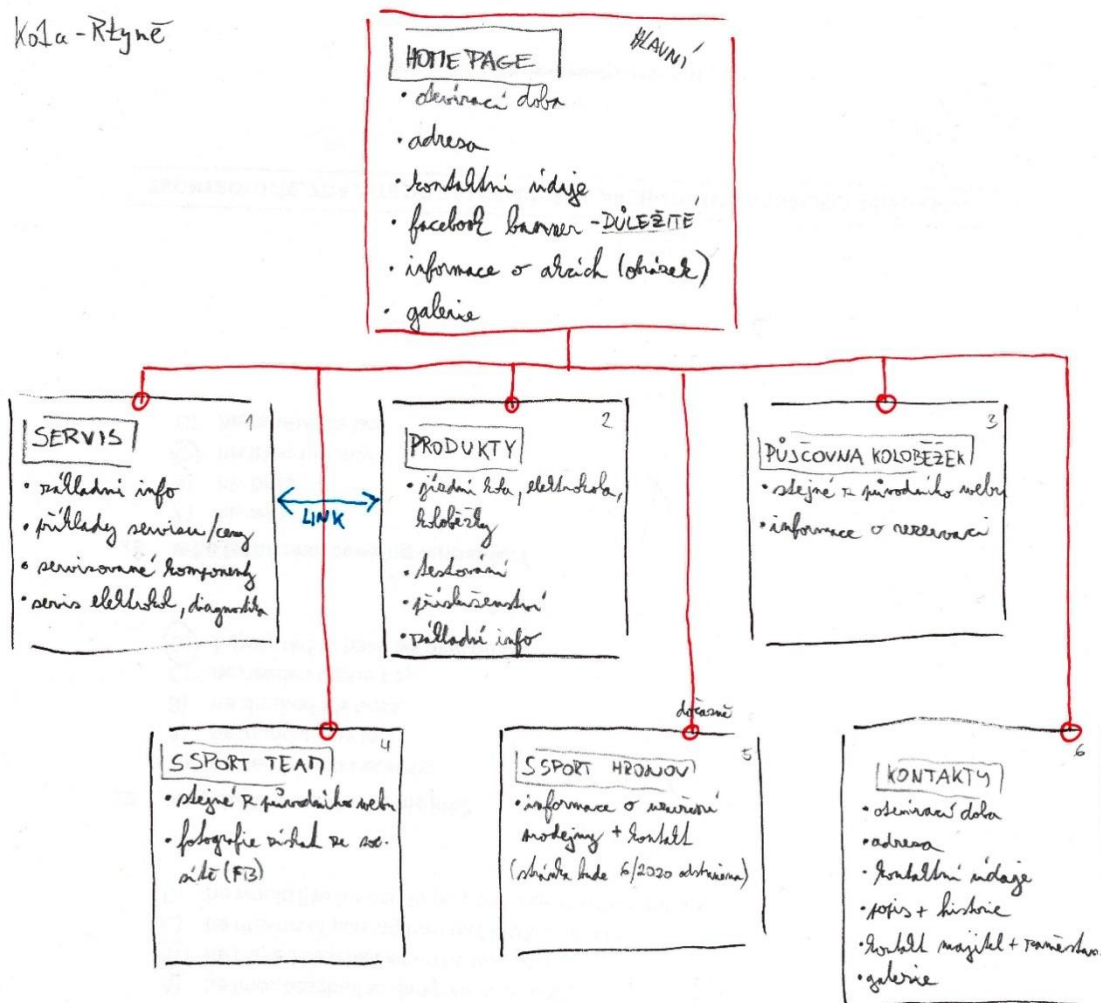 Kola-Rtyně
HLAVNÍ
HOME PAGE
• otevírací doba
• adresa
• kontaktní údaje
• facebook banner - DŮLEŽITÉ
• informace o akcích (obrázek)
• galerie
1
SERVIS
• základní info
• příklady servisu/ceny
• servisované komponenty
• servis elektrokol, diagnostika
LINK
2
PRODUKTY
• jízdní kola, elektrokola,
koloběžky
• testování
• příslušenství
• základní info
3
PŮJČOVNA KOLOBĚŽEK
• stejné z původního webu
• informace o rezervaci
4
SSPORT TEAM
• stejné z původního webu
• fotografie získat ze soc.
sítě (FB)
dočasně
5
SSPORT HRONOV
• informace o uzavření
prodejny + kontakt
(stránka bude 6/2020 odstraněna)
6
KONTAKTY
• otevírací doba
• adresa
• kontaktní údaje
• popis + historie
• kontakt majitel + zaměstnan.
• galerie